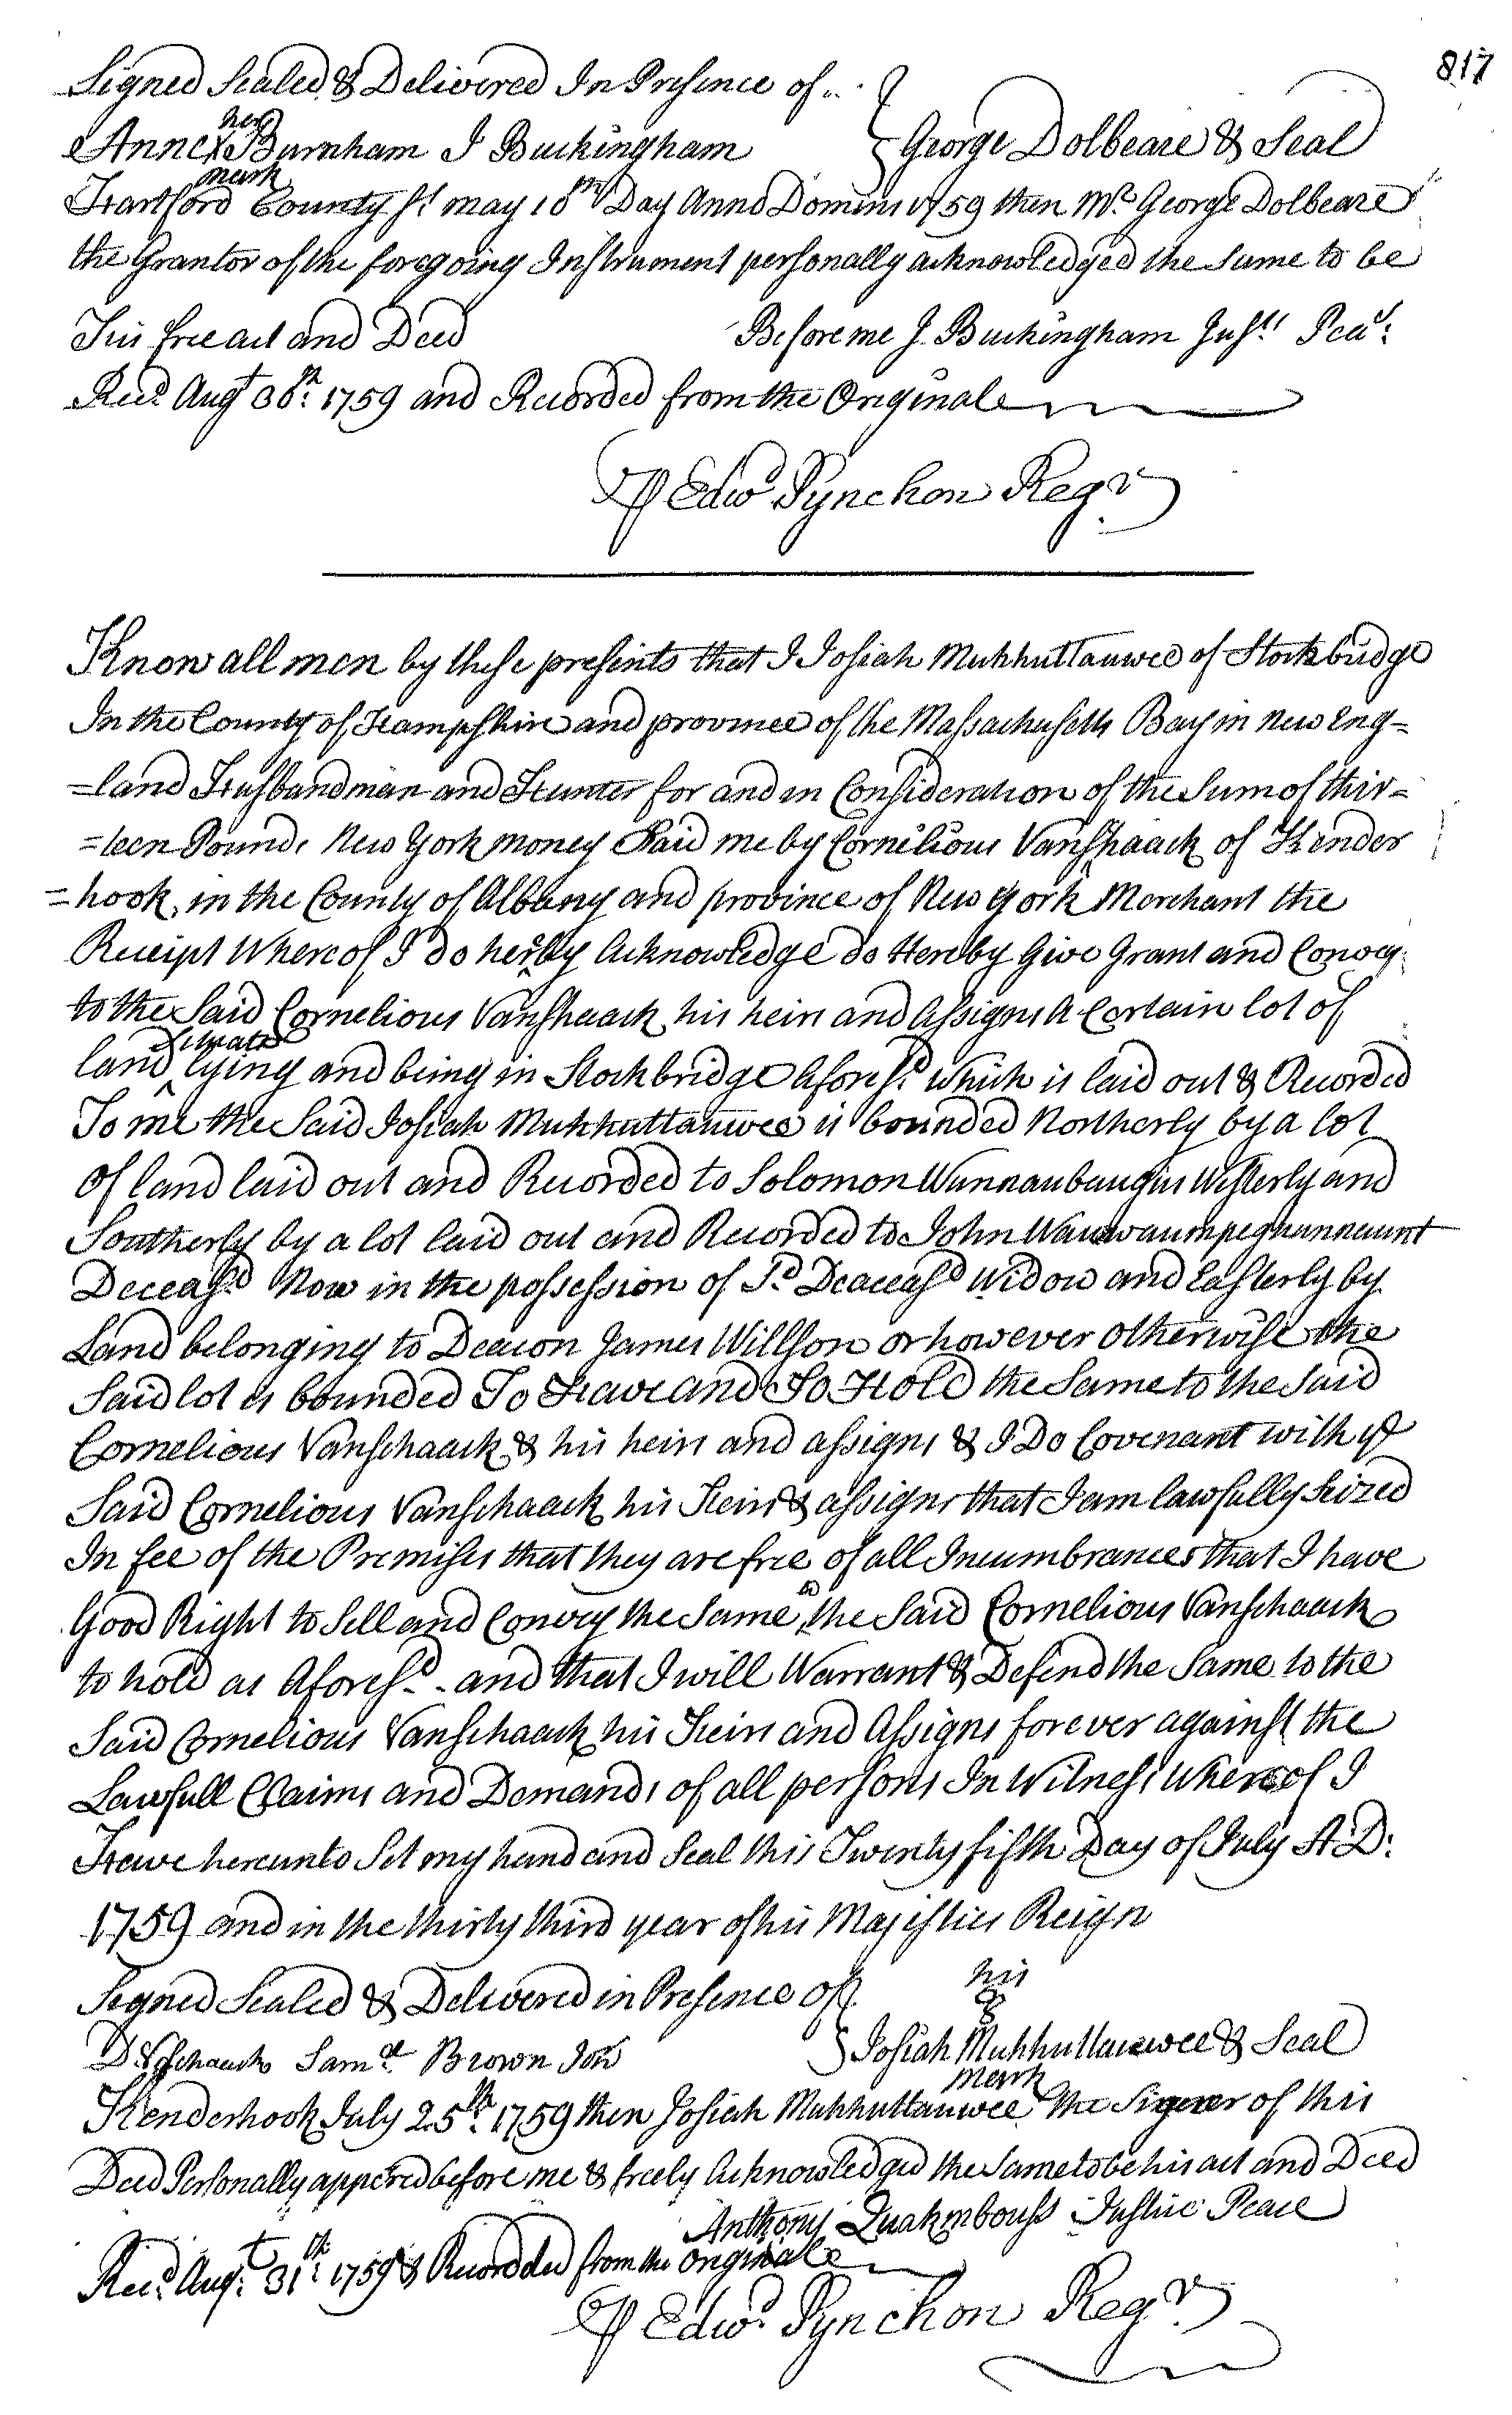 817
Signed Sealed & Delivered In Presence of
her
Anne X Burnham J Buckingham } George Dolbeare & Seal
mark
Hartford County Ss may 18th Day Anno Domini 1759 then Mr George Dolbeare
the Grantor of the foregoing Instrument personally acknowledged the same to be
His free act and Deed Before me J. Buckingham Just: Peace:
Recd Augt 30th: 1759 and Recorded from the Original
P Edwd Pynchon Regr
Know all men by these presents that I Josiah Muhhuttauwee of Stockbridge
In the County of Hampshire and province of the Massachusetts Bay in New Eng=
=land Husbandman and Hunter for and in Consideration of the Sum of thir=
=teen Pounds New York money Paid me by Cornelious VanShaack of Kinder
=hook in the County of Albany and province of New York Merchant the
Receipt Whereof I do hereby Acknowledge do Hereby Give Grant and Convey
to the Said Cornelious VanShaack his heirs and Assigns A Certain lot of
Situate
land ^ lying and being in Stockbridge Aforesd. which is laid out & Recorded
To me the Said Josiah Muhhuttauwee is bounded Northerly by a lot
Of land laid out and Recorded to Solomon Wannaubaugus Westerly and
Southerly by a lot laid out and Recorded to John Wauwaumpeghunnaunt
Deceasd. Now in the possession of Sd Deaceasd Widow and Easterly by
Land belonging to Deacon James Willson or however otherwise the
Said lot is bounded To Have and To Hold the Same to the Said
Cornelious Vanschaack & his heirs and assigns & I Do Covenant with ye
Said Cornelious Vanschaack his Heirs & assigns that I am lawfully Seized
In fee of the Premises that they are free of all Incumbrances that I have
to
Good Right to Sell and Convey the Same ^ the Said Cornelious Vanschaack
to hold as Aforesd. and that I will Warrant & Defend the Same to the
Said Cornelious Vanschaack his Heirs and Assigns forever against the
Lawfull Claims and Demands of all persons In Witness Whereof I
Have hereunto Set my hand and Seal this Twenty fifth Day of July A:D:
1759 and in the thirty third year of his Majesties Reign
Signed Sealed & Delivered in Presence of } his
D: Vschaack Samll. Brown Jur } Josiah Muhhuttauwee & Seal
mark
Kenderhook July 25th: 1759 then Josiah Muhhuttauwee the Signer of this
Deed Personally appered before me & freely Acknowledged the Same to be his act and Deed
Anthony Quakmbouss Justic Peace
Recd. Augt. 31th: 1759 & Recordded from the Original
P Edwd. Pynchon Regr